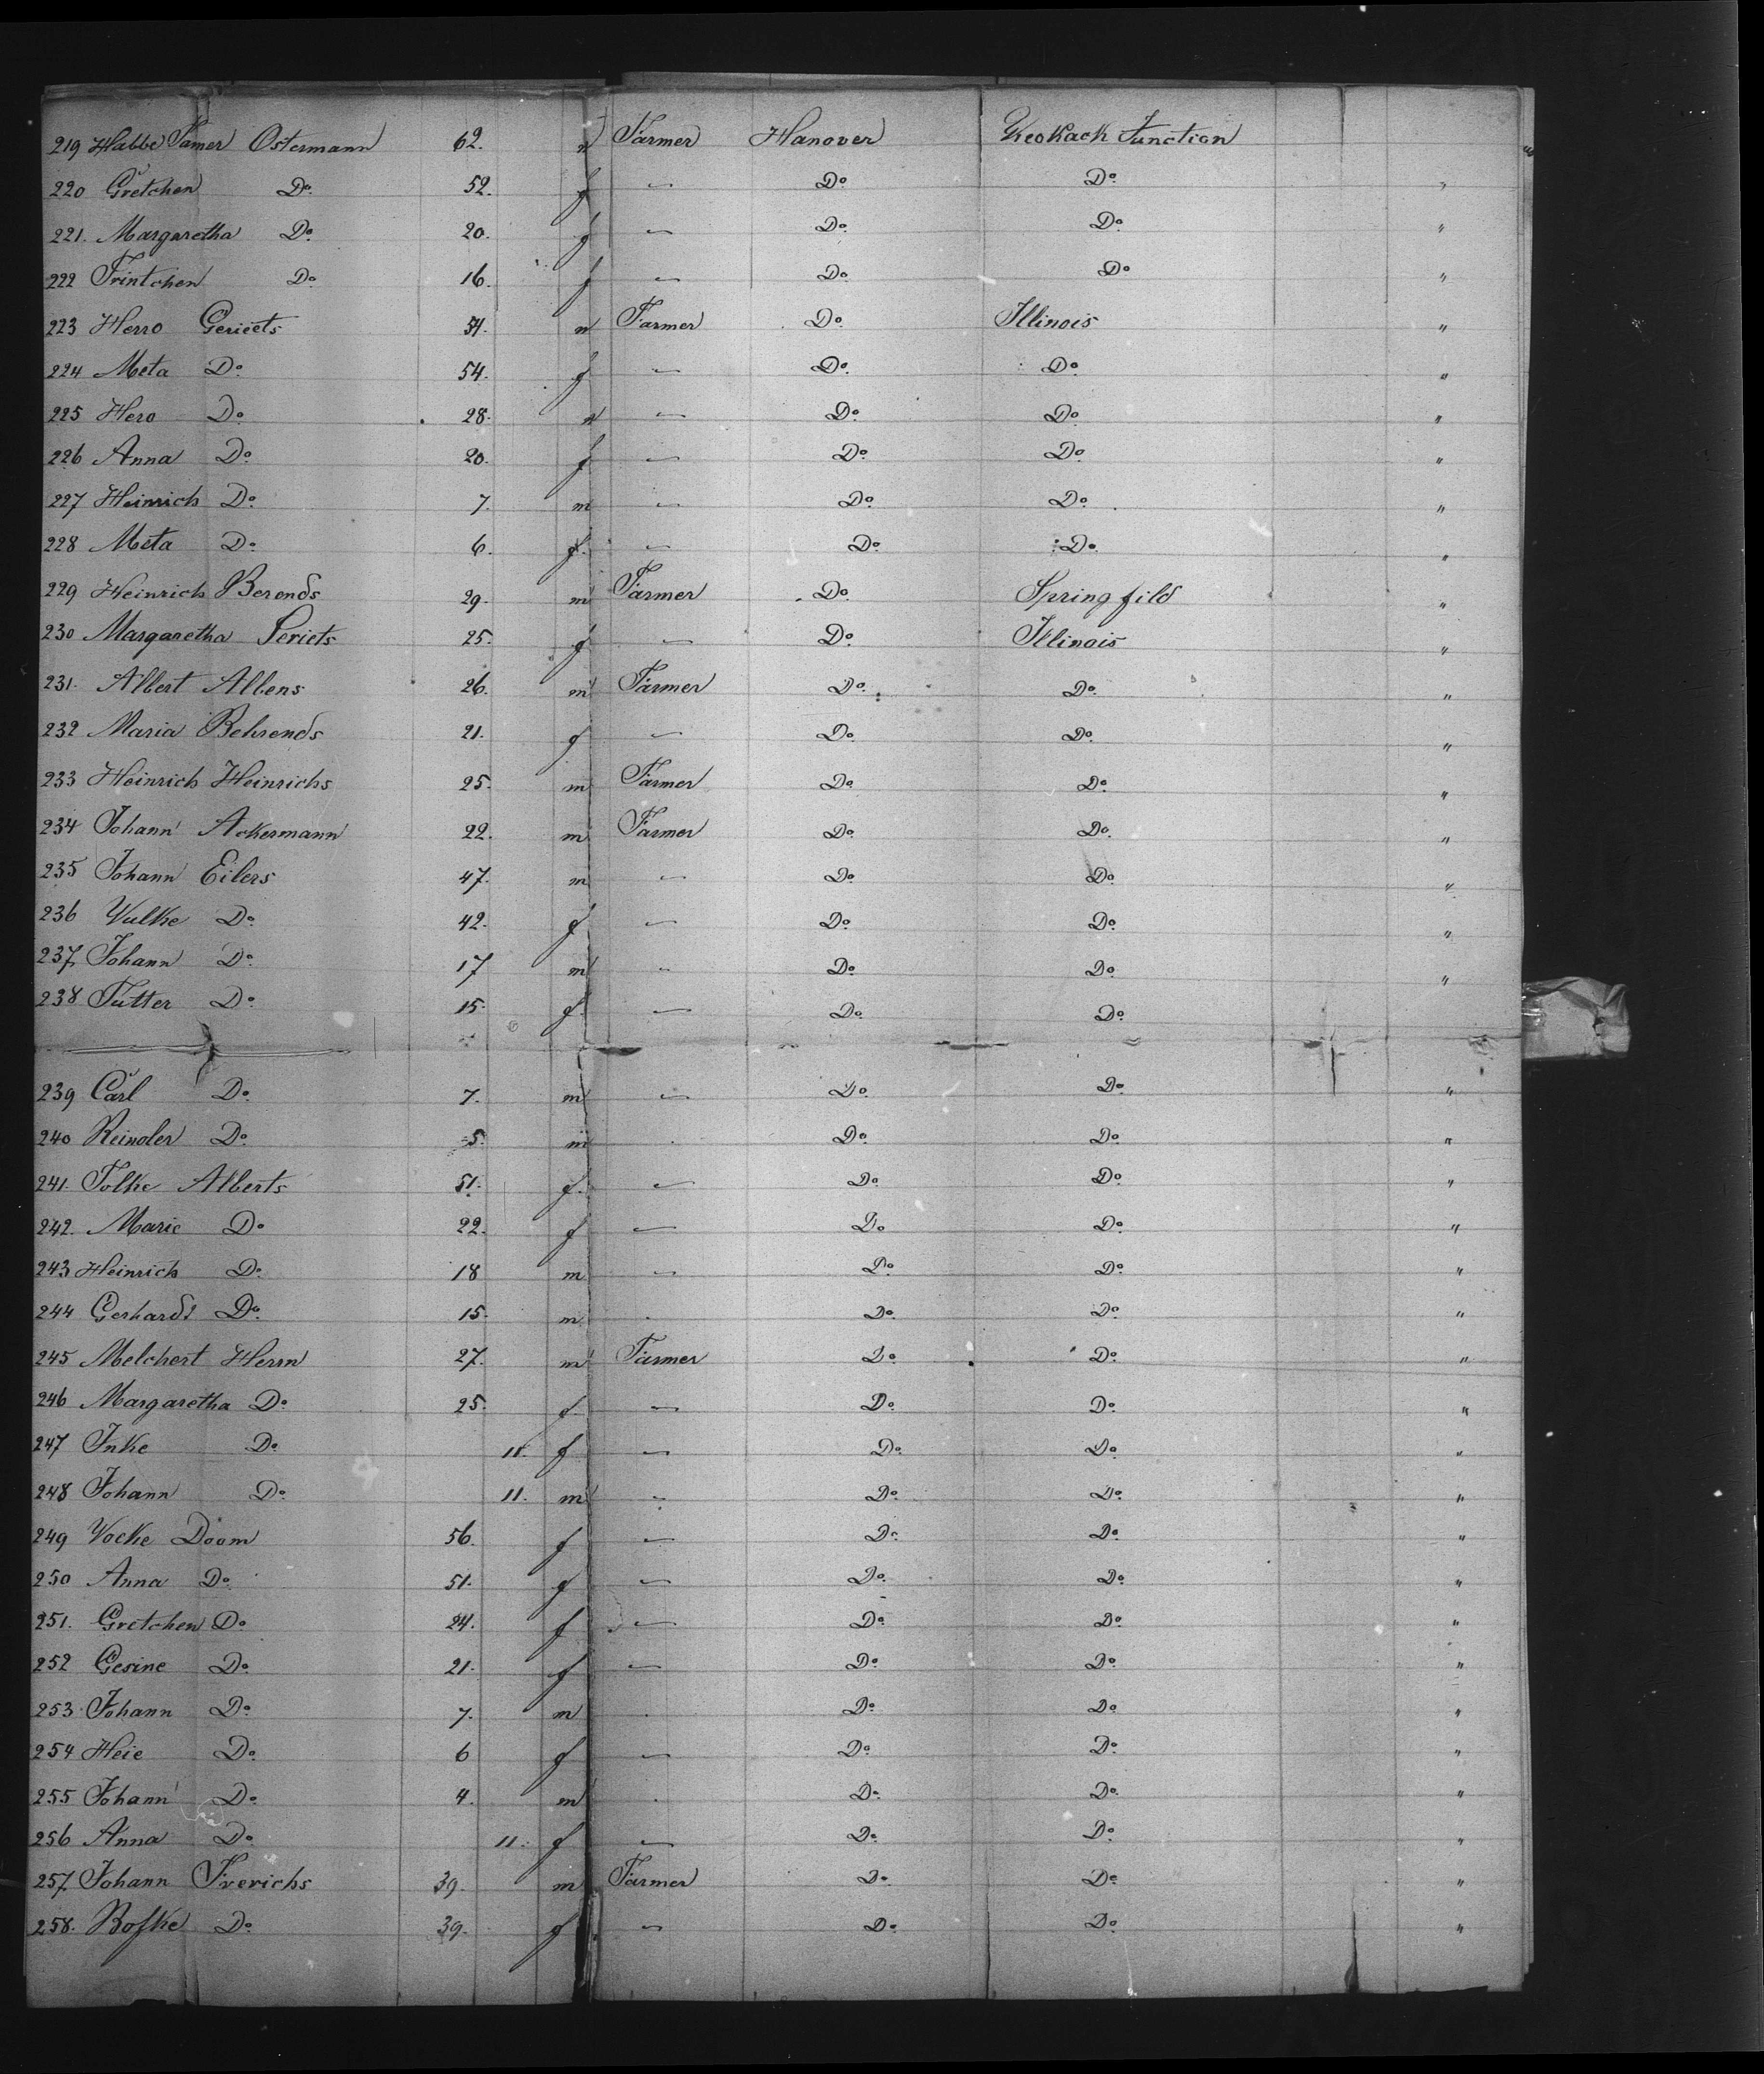 219 Habbe Jamer Ostermann 62. m Farmer Hanover Keokack Junction "
220 Gretchen Do. 52. f — Do Do "
221. Margaretha Do. 20. f — Do. Do. "
222 Trintchen Do 16. f — Do. Do "
223 Herro Gerieets 54. m Farmer Do. Illinois "
224 Meta Do. 54. f — Do. Do. "
225 Hero Do. 28. m — Do. Do. "
226 Anna Do 20. f — Do. Do. "
227 Heinrich Do. 7. m — Do. Do. "
228 Meta Do. 6. f. — Do. Do. "
229 Heinrich Berends 29. m Farmer Do. Springfild "
230 Margaretha Geriets 25. f — Do. Illinois "
231. Albert Albens 26. m Farmer Do. Do. "
232 Maria Behrends 21. f — Do. Do. "
233 Heinrich Heinrichs 25. m Farmer Do. Do. "
234 Johann Ackermann 22. m Farmer Do. Do. "
235 Johann Eilers 47. m — Do. Do. "
236 Vulke Do. 42. f — Do. Do. "
237. Johann Do. 17 m " Do. Do. "
238 Tutter Do. 15. f. — Do. Do.
239 Carl Do. 7. m — Do. Do. "
240 Reinoler Do. 5. m Do. Do. "
241. Tolke Alberts 51. f. — Do. Do. "
242. Marie Do 22. f — Do. Do. "
243 Heinrich Do. 18 m — Do. Do. "
244 Gerhardt Do. 15. m Do. Do. "
245 Melchert Herrn 27. m Farmer Do. Do. "
246 Margaretha Do. 25. f. — Do. Do. "
247 Inke Do. 11. f — Do. Do. "
248 Johann Do. 11. m — Do. Do. "
249 Vocke Doom 56. f — Do. Do. "
250 Anna Do. 51. f — Do. Do. "
251. Gretchen Do. 24. f — Do. Do. "
252 Gesine Do. 21. f — Do. Do. "
253. Johann Do. 7. m Do. Do. "
254 Heie Do. 6 f — Do. Do. "
255 Johann Do. 4. m Do. Do. "
256 Anna Do. 11. f — Do. Do. "
257. Johann Frerichs 39. m Farmer Do. Do. "
258. Rofke Do. 39. f — Do. Do. "